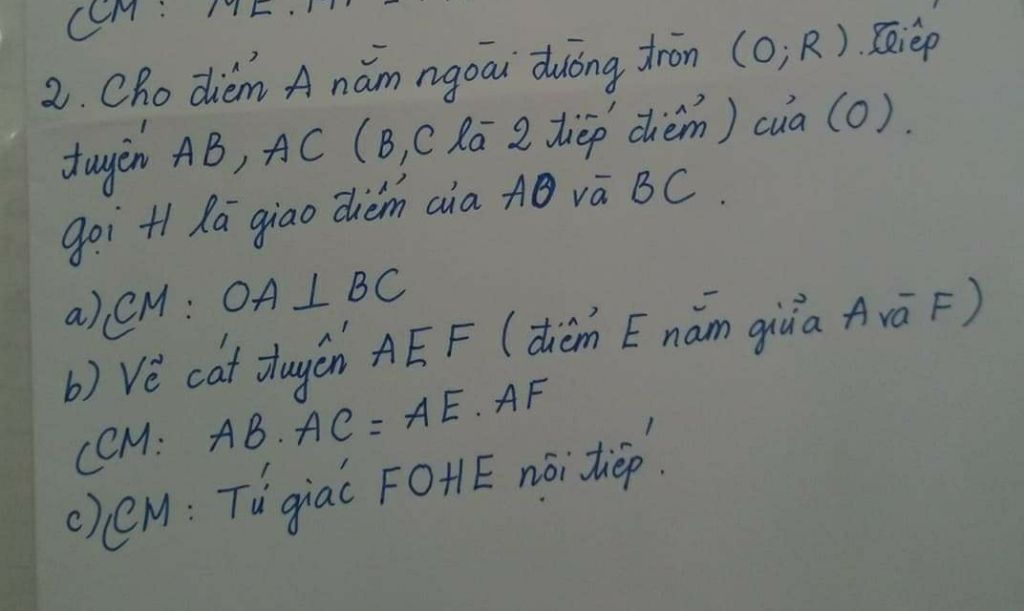 CCM: ME.M
2. Cho điểm A nằm ngoài đường tròn (O;R). Tiếp
tuyến AB, AC (B,C là 2 tiếp điểm) của (O).
gọi H là giao điểm của AO và BC.
a) CCM: OA ⊥ BC
b) Vẽ cát tuyến AEF (điểm E nằm giữa A và F)
CCM: AB.AC = AE.AF
c) CCM: Tứ giác FOHE nội tiếp.